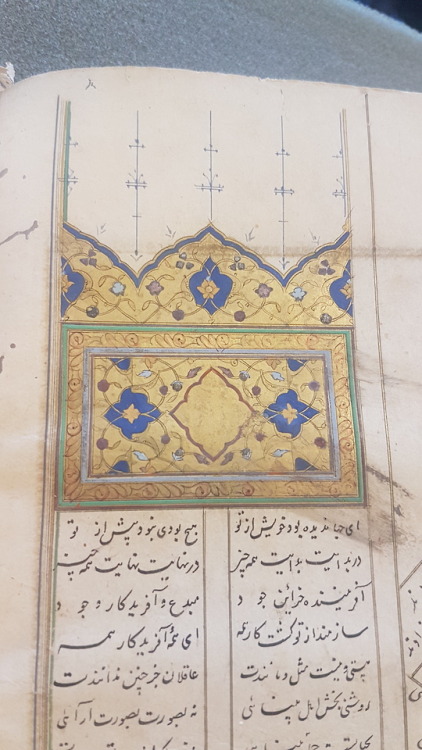 ای جهان دیده بود خویش از تو هیچ بودی نبود پیش از تو
در بدایت بدایت همه چیز در نهایت نهایت همه چیز
آفریننده خزائن جود مبدع و آفریدکار وجود
سازمند از تو کشت کار همه ای همه آفریدکار همه
هستی و نیست مثل و مانندت عاقلان جز چنین ندانندت
روشنی بخش اهل بینائی نه بصورت بصورت آرائی